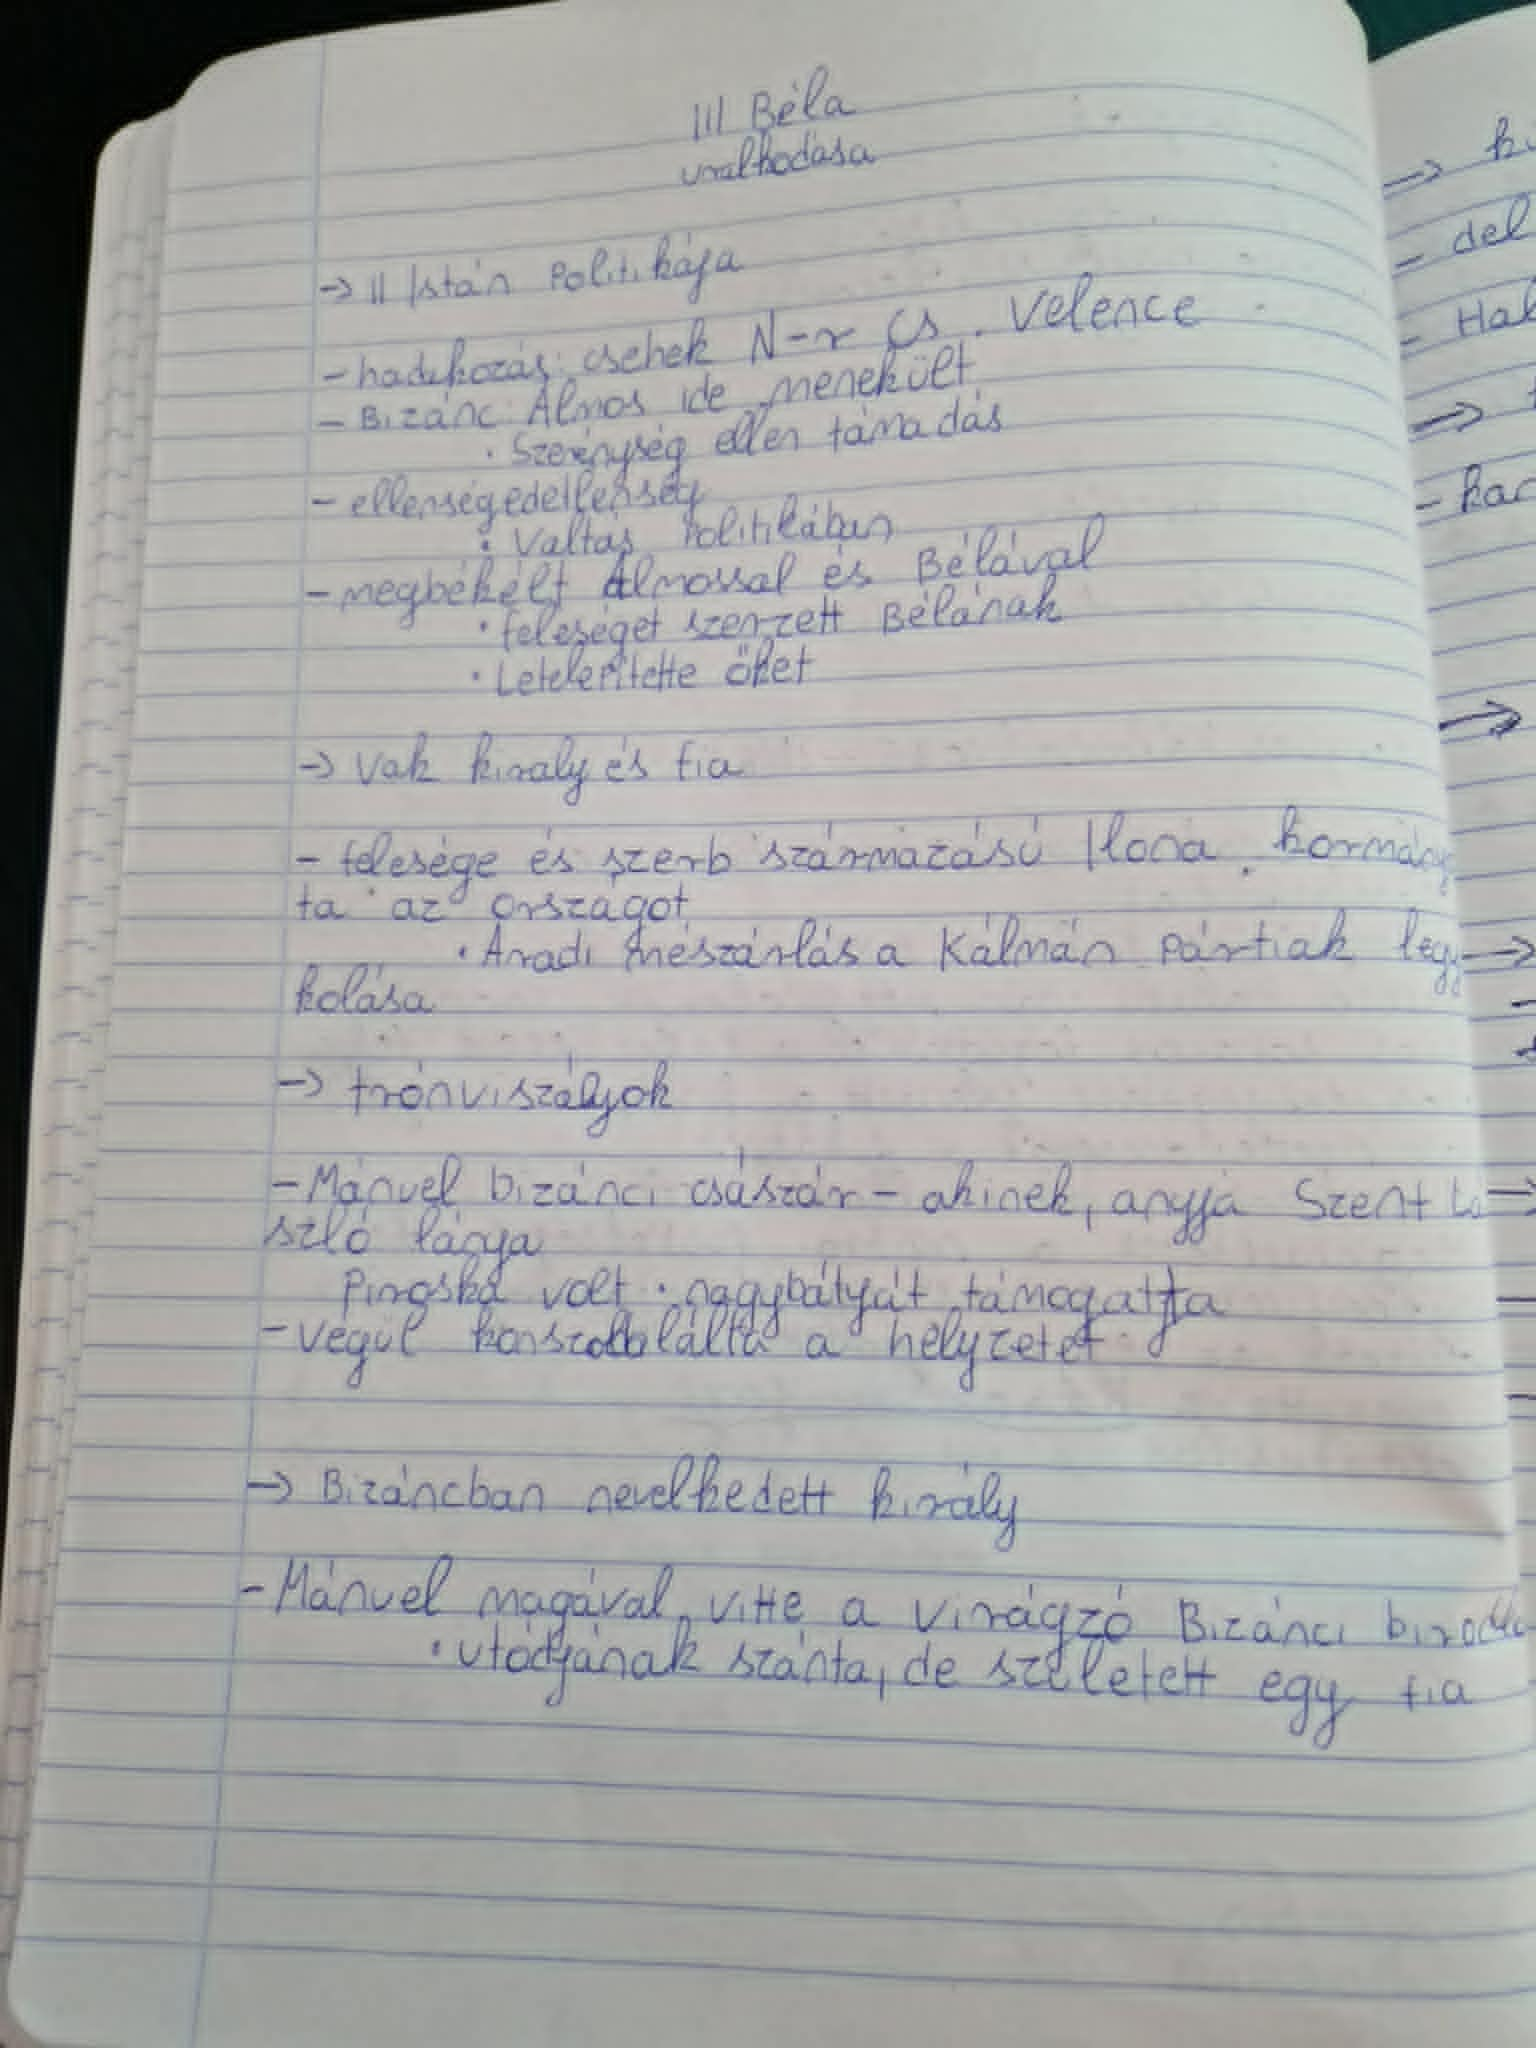 III Béla
uralkodása
→ II Istán Politikája
- hadakozás: csehek N-r Cs. Velence
- Bizánc: Álmos ide menekült
• Szerénység ellen támadás
- ellenségedetlenség
• Valtás Politikában
- megbékélt Álmossal és Bélával
• feleséget szerzett Bélának
• Letelepítette őket
→ Vak kiraly és fia
- felesége és szerb származású Ilona. kormányz
ta az országot
• Aradi mészárlás a Kálmán Pártiak legy
kolása
→ trónviszályok
- Mánuel bizánci császár - akinek, anyja Szent Lá
szló lánya
Piroska volt • nagybátyját támogatta
- végül a helyzetet
→ Bizáncban nevelkedett király
- Mánuel magával vitte a virágzó Bizánci
• utódjának szánta, de született egy fia
→
- del
-
→
- kar
→
→
→